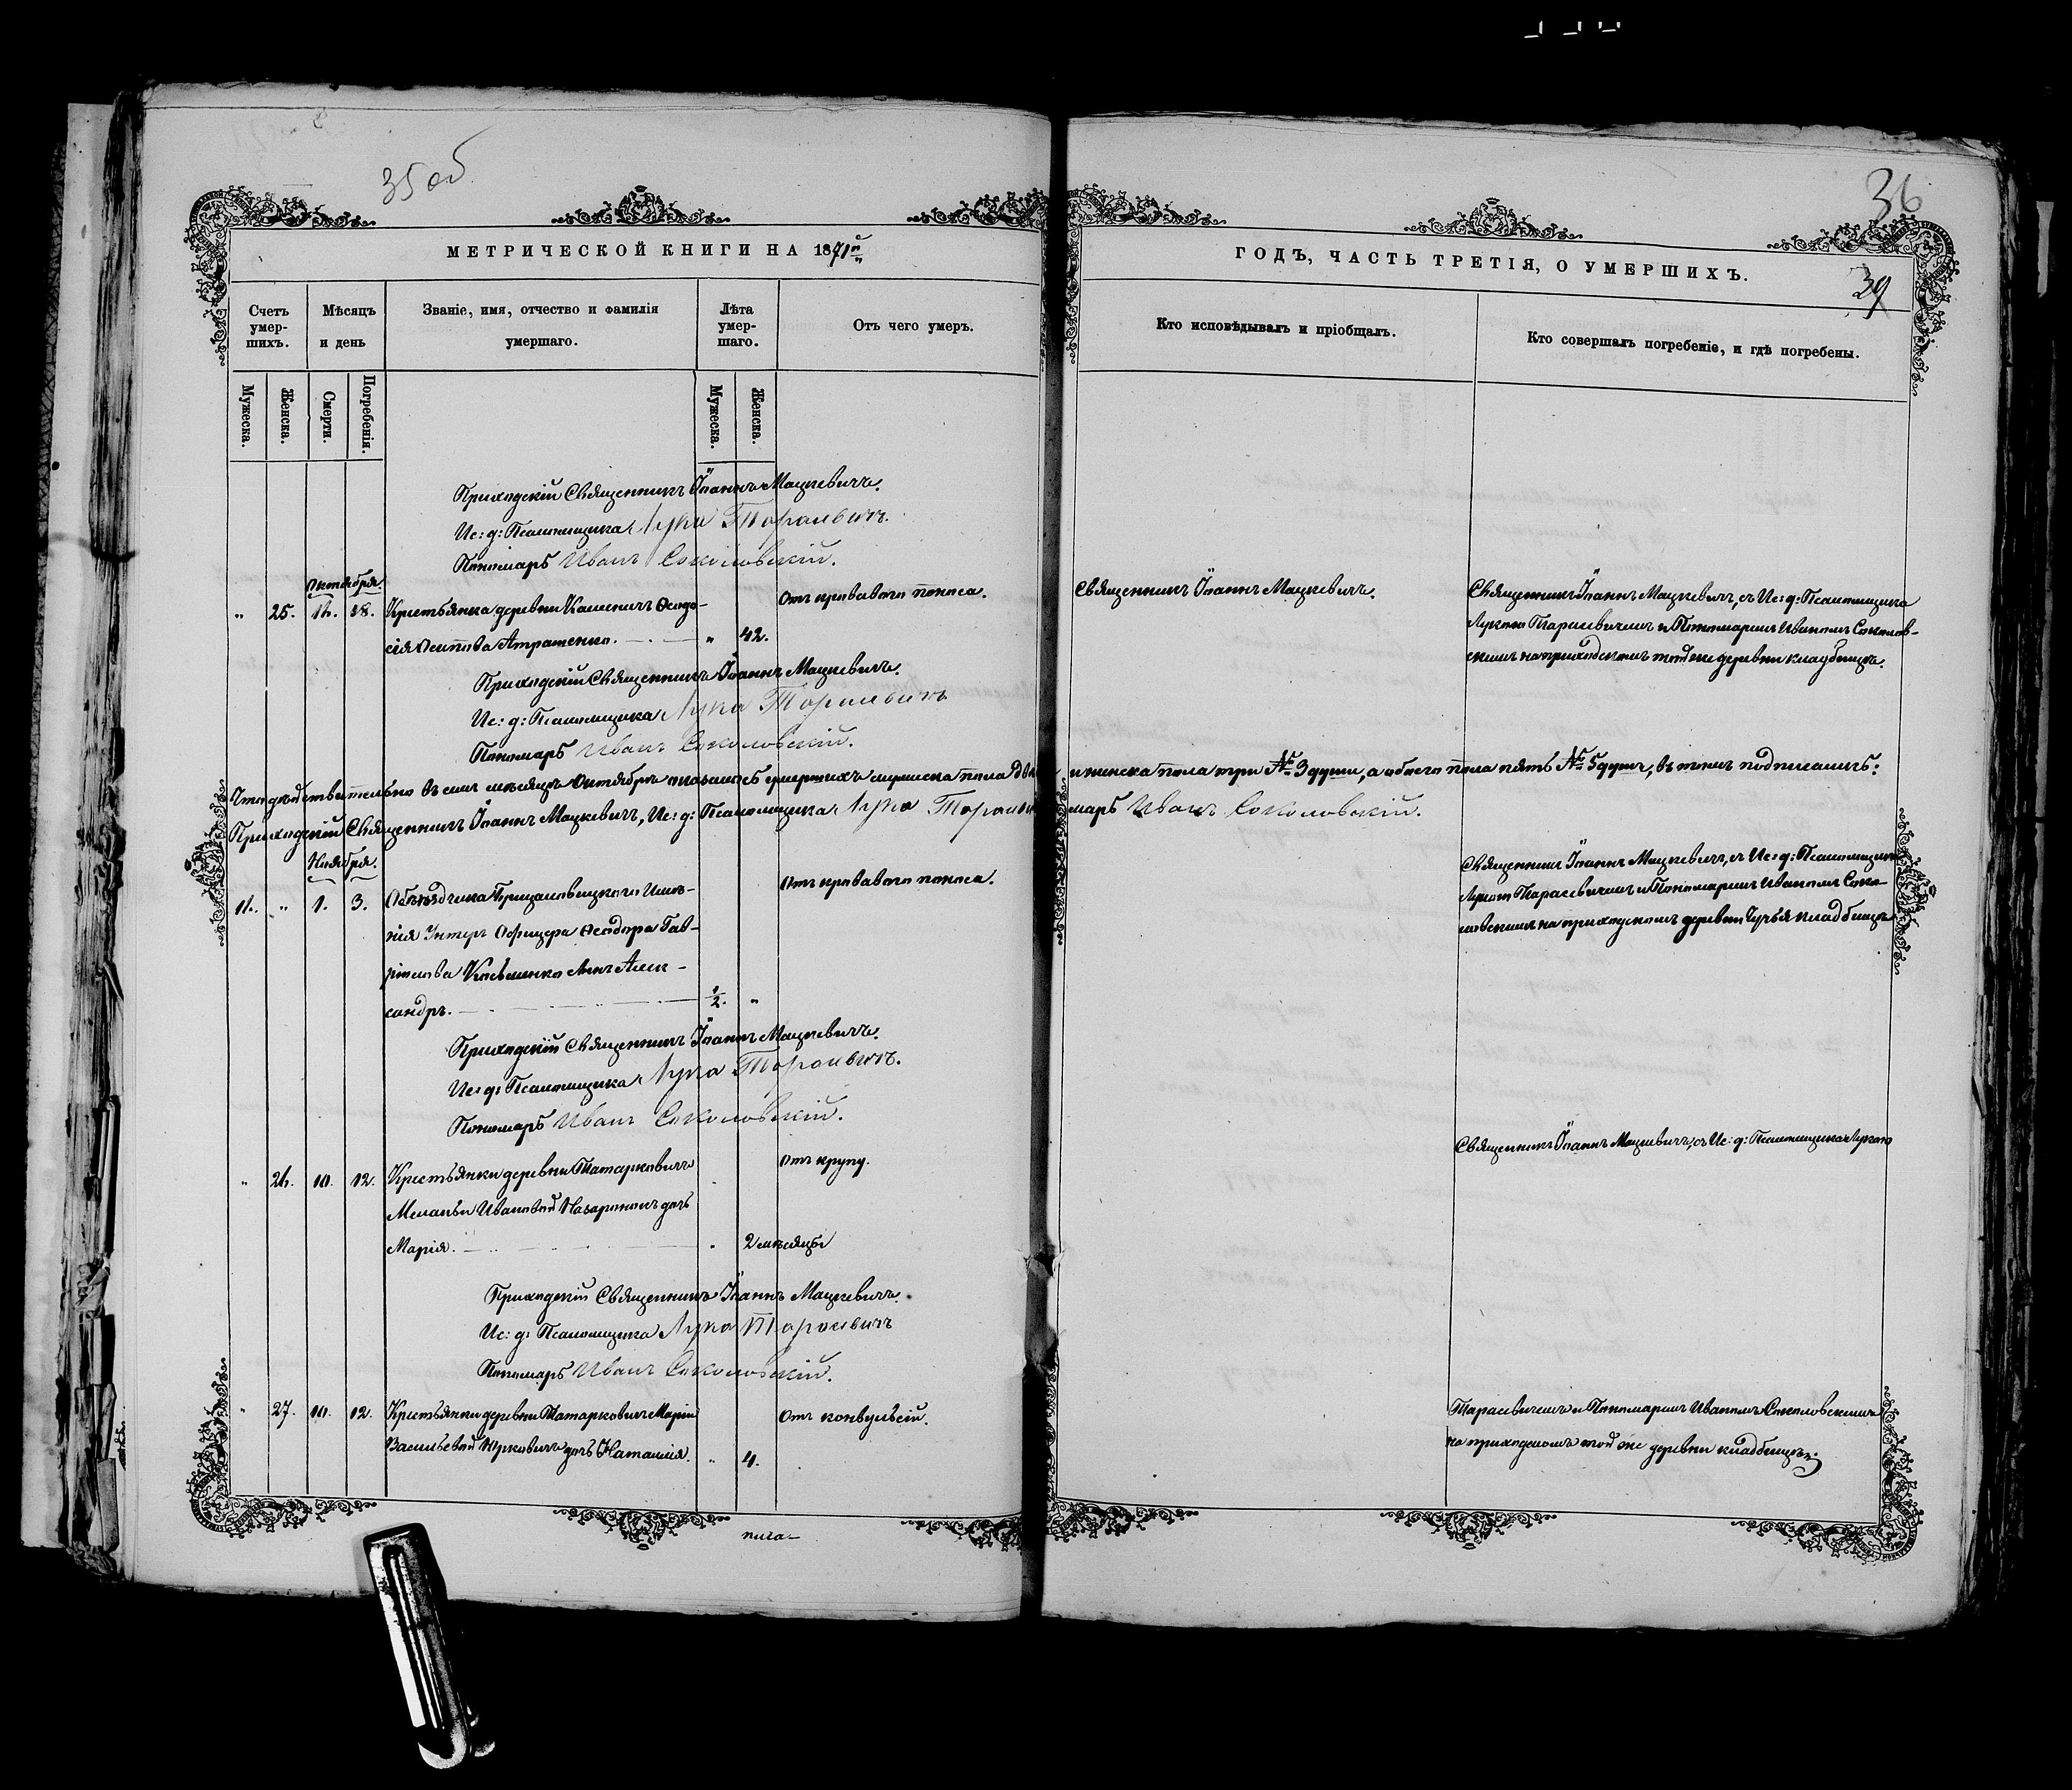 35 об
36
МЕТРИЧЕСКОЙ КНИГИ НА 1871й
ГОДЪ, ЧАСТЬ ТРЕТІЯ, О УМЕРШИХЪ.
39
Счетъ умер-шихъ.
Мѣсяцъ и день
Званіе, имя, отчество и фамилія умершаго.
Лѣта умер-шаго.
Отъ чего умеръ.
Кто исповѣдывалъ и пріобщалъ.
Кто совершалъ погребеніе, и гдѣ погребены.
Мужеска.
Женска.
Смерти.
Погребенія.
Мужеска.
Женска.
Приходскій Священникъ Іоаннъ Мацкевичъ.
Ис: д: Псаломщика Лука Тарасевичъ.
Пономарь Иванъ Соколовскій.
Октября.
„ 25. 16. 18. Крестьянка деревни Каменичъ Ѳеодо-
сія Осипова Атрашенко. „ 42.
Отъ кроваваго поноса.
Священникъ Іоаннъ Мацкевичъ.
Священникъ Іоаннъ Мацкевичъ, съ Ис: д: Псаломщика
Лукою Тарасевичемъ и Пономаремъ Иваномъ Соколов-
скимъ на приходскомъ той же деревни кладбищѣ.
Приходскій Священникъ Іоаннъ Мацкевичъ.
Ис: д: Псаломщика Лука Тарасевичъ
Пономарь Иванъ Соколовскій.
Что дѣйствительно въ семъ мѣсяцѣ Октябрѣ оказалось умершихъ мужеска пола два и женска пола три № 3 души, а обоего пола пять № 5 душъ, въ томъ подписались:
Приходскій Священникъ Іоаннъ Мацкевичъ, Ис: д: Псаломщика Лука Тарасеви марь Иванъ Соколовскій.
Ноября.
16. „ 1. 3. Объѣздчика Имѣ-
нія Унтеръ Офицера Ѳеодора Гав-
рилова сынъ Алек-
сандръ. ½. „
Отъ кроваваго поноса.
Священникъ Іоаннъ Мацкевичъ, съ Ис: д: Псаломщика
Лукою Тарасевичемъ и Пономаремъ Иваномъ Соко-
ловскимъ на приходскомъ деревни кладбищѣ
Приходскій Священникъ Іоаннъ Мацкевичъ.
Ис: д: Псаломщика Лука Тарасевичъ.
Пономарь Иванъ Соколовскій.
„ 26. 10. 12. Крестьянки деревни Татарковичъ
Меланьи Ивановой дочь
Марія. „ 2 мѣсяца
Отъ крупу.
Священникъ Іоаннъ Мацкевичъ, съ Ис: д: Псаломщика Лукою
Приходскій Священникъ Іоаннъ Мацкевичъ.
Ис: д: Псаломщика Лука Тарасевичъ
Пономарь Иванъ Соколовскій.
„ 27. 10. 12. Крестьянки деревни Татарковичъ Маріи
Васильевой Юрковичъ дочь Наталія. „ 4.
Отъ конвульсій.
Тарасевичемъ и Пономаремъ Иваномъ Соколовскимъ
на приходскомъ той же деревни кладбищѣ.